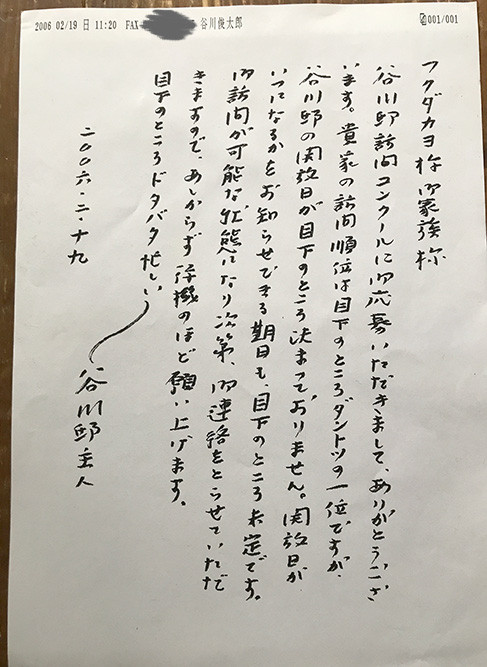 2006 02/19 日 11:20 FAX 谷川俊太郎 001/001
フクダカヨ様 御家族様
谷川邸訪問コンクールに御応募いただきまして、ありがとうござ
います。貴家の訪問順位は目下のところダントツの一位ですが、
谷川邸の開放日が目下のところ決まっておりません。開放日が
いつになるかをお知らせできる期日も、目下のところ未定です。
御訪問が可能な状態になり次第、御連絡をとらせていただ
きますので、あしからず待機のほど願い上げます。
目下のところドタバタ忙しい
谷川邸主人
二〇〇六・二・十九